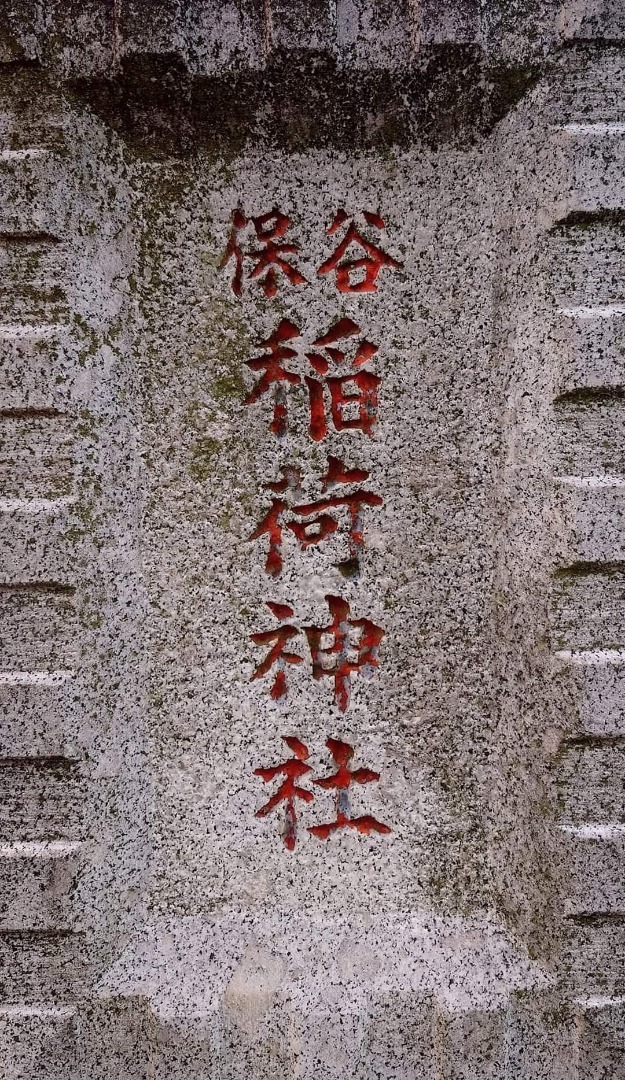 谷保
稲荷神社